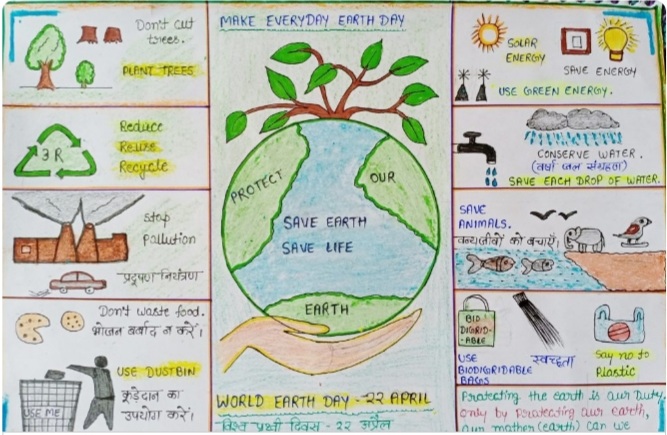 Don't cut
trees.
PLANT TREES
3R
Reduce
Reuse
Recycle
Stop
Pollution
प्रदूषण नियंत्रण
Don't waste food.
भोजन बर्बाद न करें।
USE DUSTBIN
कूड़ेदान का
उपयोग करें।
USE ME
MAKE EVERYDAY EARTH DAY
PROTECT
OUR
SAVE EARTH
SAVE LIFE
EARTH
WORLD EARTH DAY - 22 APRIL
विश्व पृथ्वी दिवस - 22 अप्रैल
SOLAR
ENERGY
SAVE ENERGY
USE GREEN ENERGY.
CONSERVE WATER.
(वर्षा जल संग्रहण)
SAVE EACH DROP OF WATER.
SAVE
ANIMALS.
वन्यजीवों को बचाएँ।
BIO
DIGRID-
ABLE
USE
BIODIGRIDABLE
BAGS
स्वच्छता
Say no to
Plastic
Protecting the earth is our Duty,
Only by Protecting our earth,
our mother (earth) can we